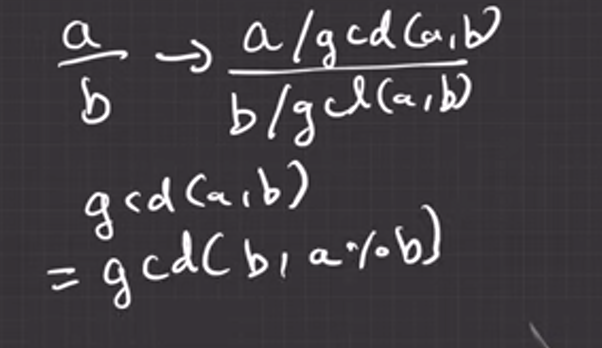 a/b → a/gcd(a,b)
b/gcd(a,b)
gcd(a,b)
= gcd(b, a%b)